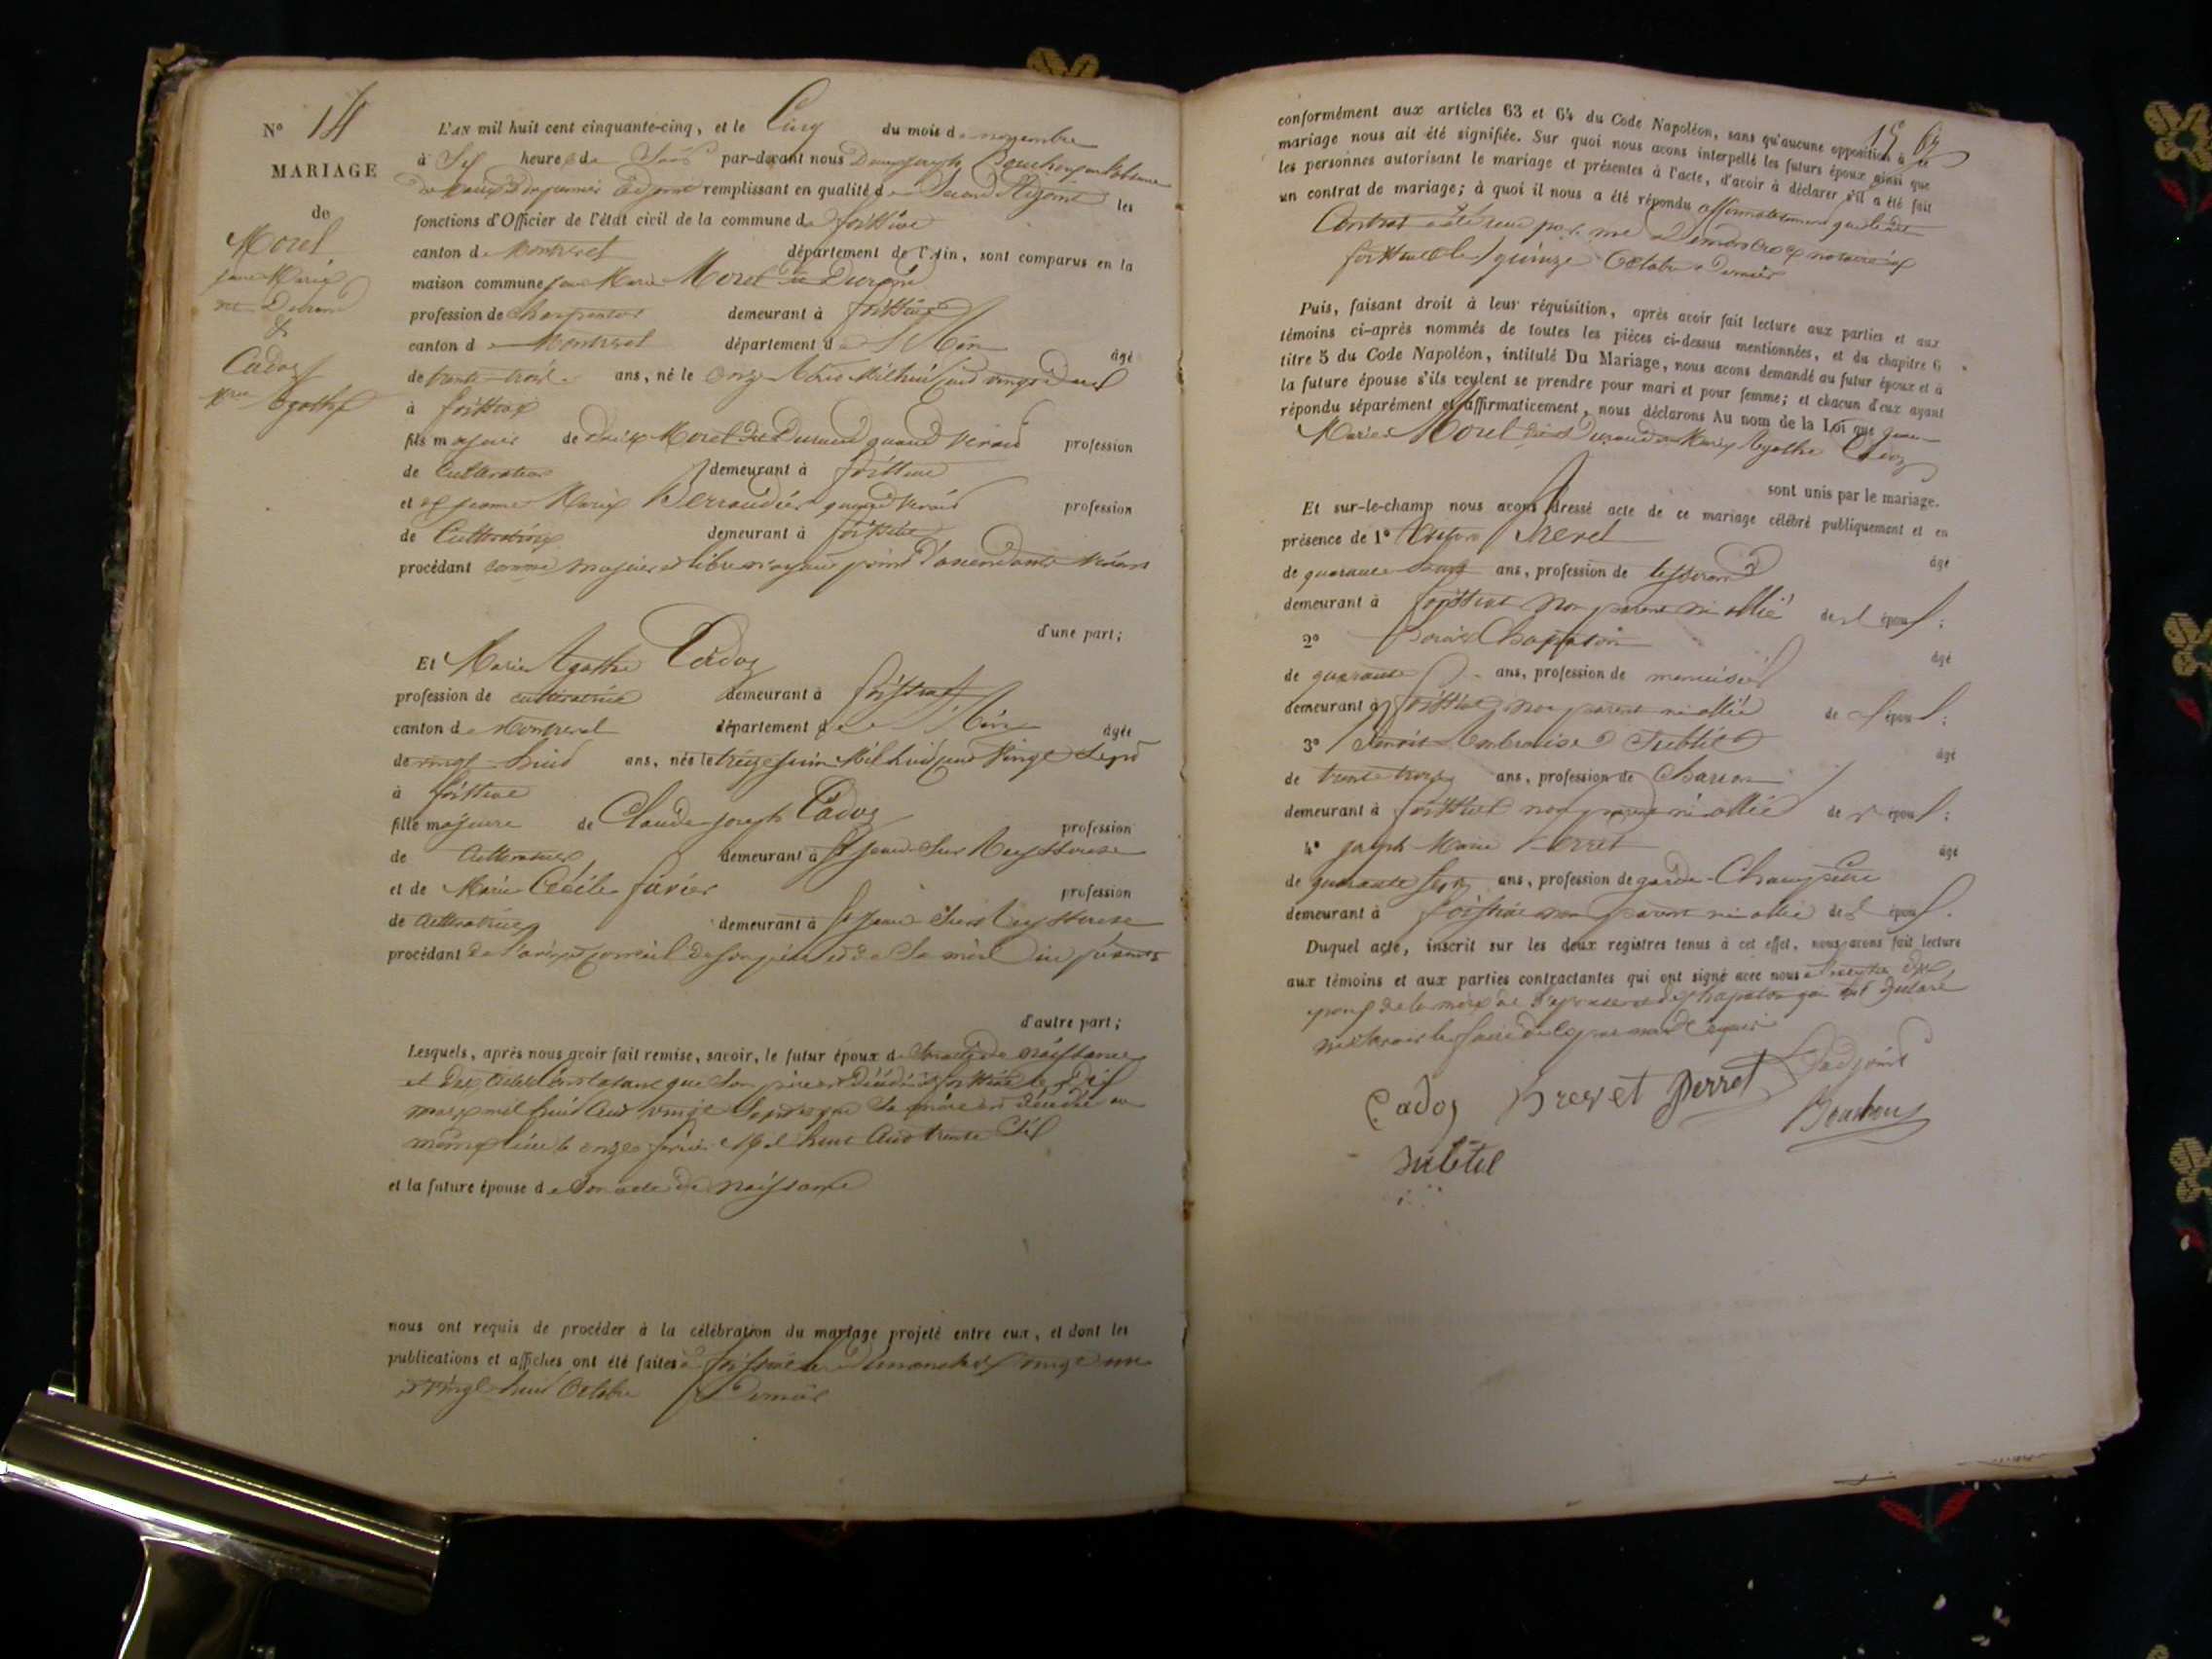 N° 14
MARIAGE
de
Morel
jean Marie
dit Durand
&
Cadoz
Marie Agathe
L'AN mil huit cent cinquante-cinq, et le Cinq du mois de novembre
à Six heures du Soir par-devant nous joseph Bouchoux
remplissant en qualité de Second Adjoint les
fonctions d'Officier de l'état civil de la commune de foissiat
canton de Montrevel département de l'Ain, sont comparus en la
maison commune jean Marie Morel dit Durand
profession de charpentier demeurant à foissiat
canton de Montrevel département de l'Ain âgé
de trente trois ans, né le onze Mil huit cent vingt deux
à foissiat
fils majeur de Morel dit Durand quand vivait profession
de Cultivateur demeurant à foissiat
et de jeanne Marie Perraudier quand vivait profession
de Cultivatrice demeurant à foissiat
procédant comme majeur et libre n'ayant point d'ascendants vivans
d'une part;
Et Marie Agathe Cadoz
profession de cultivatrice demeurant à foissiat
canton de Montrevel département de l'Ain âgée
de vingt huit ans, née le treize juin Mil huit cent vingt Sept
à foissiat
fille majeure de Claude joseph Cadoz profession
de cultivateur demeurant à St jean Sur Reyssouze
et de Marie Cécile favier profession
de cultivatrice demeurant à St jean Sur Reyssouze
procédant de l'avis et conseil de son père et de Sa mère ici présents
d'autre part;
Lesquels, après nous avoir fait remise, savoir, le futur époux de Son acte de naissance
et des actes constatant que Son père est décédé à foissiat le dix
mars mil huit cent vingt Sept et que Sa mère est décédée au
même lieu le onze février Mil huit cent trente Six
et la future épouse de Son acte de naissance
nous ont requis de procéder à la célébration du mariage projeté entre eux, et dont les
publications et affiches ont été faites à foissiat les Dimanches vingt un
et vingt huit Octobre Dernier
15 67
conformément aux articles 63 et 64 du Code Napoléon, sans qu'aucune opposition à ce
mariage nous ait été signifiée. Sur quoi nous avons interpellé les futurs époux ainsi que
les personnes autorisant le mariage et présentes à l'acte, d'avoir à déclarer s'il a été fait
un contrat de mariage; à quoi il nous a été répondu affirmativement que ledit
Contrat a été reçu par me notaire à
foissiat le quinze Octobre Dernier
Puis, faisant droit à leur réquisition, après avoir fait lecture aux parties et aux
témoins ci-après nommés de toutes les pièces ci-dessus mentionnées, et du chapitre 6
titre 5 du Code Napoléon, intitulé Du Mariage, nous avons demandé au futur époux et à
la future épouse s'ils veulent se prendre pour mari et pour femme; et chacun d'eux ayant
répondu séparément et affirmativement, nous déclarons Au nom de la Loi que jean
Marie Morel dit Durand et Marie Agathe Cadoz
sont unis par le mariage.
Et sur-le-champ nous avons dressé acte de ce mariage célébré publiquement et en
présence de 1° Brevet âgé
de quarante ans, profession de tisserand
demeurant à foissiat non parent ni allié des époux;
2° Chapaton âgé
de quarante ans, profession de menuisier
demeurant à foissiat non parent ni allié des époux;
3° Benoit Ambroise Subtil âgé
de trente trois ans, profession de Charron
demeurant à foissiat non parent ni allié des époux;
4° joseph Marie Perret âgé
de quarante Sept ans, profession de garde-Champêtre
demeurant à foissiat non parent ni allié des époux.
Duquel acte, inscrit sur les deux registres tenus à cet effet, nous avons fait lecture
aux témoins et aux parties contractantes qui ont signé avec nous excepté les
époux de la mère de l'épouse et de Chapaton qui ont déclaré
ne Savoir le faire de ce par nous requis
Cadoz Brevet perret L'adjoint
Bouchoux
Subtil